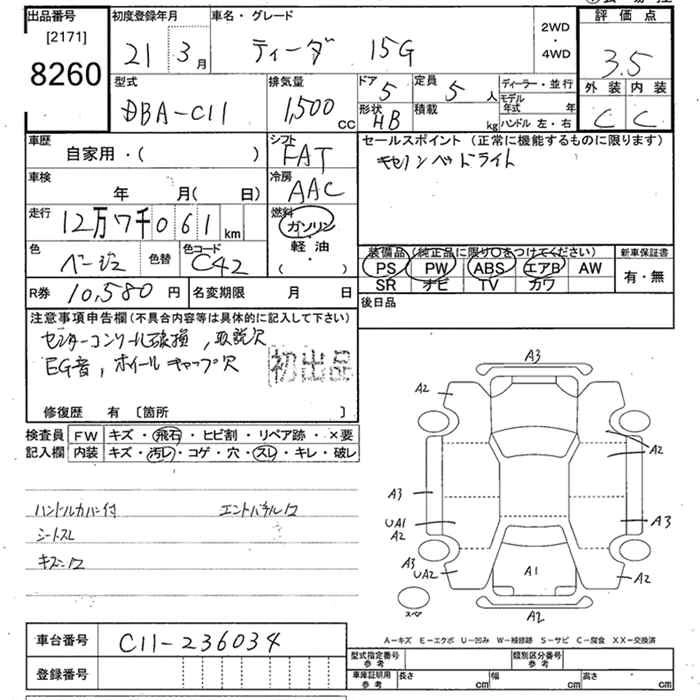 出品番号
[2171]
8260
初度登録年月
21 3月
車名・グレード
ティーダ 15G
2WD
・
4WD
評価点
3.5
型式
DBA-C11
排気量
1,500 cc
ドア
5
定員
5 人
形状
HB
積載
kg
ディーラー・並行
モデル年式 年
ハンドル 左・右
外装 内装
C C
車歴
自家用・( )
シフト
FAT
セールスポイント (正常に機能するものに限ります)
車検
年 月( 日)
冷房
AAC
走行
12万7千061 km
燃料
ガソリン
軽油
( ・ )
色
ベージュ
色替
色コード
C42
装備品(純正品に限り○をつけてください)
PS PW ABS エアB AW
SR ナビ TV カワ
新車保証書
有・無
R券 10,580 円
名変期限 月 日
後日品
注意事項申告欄(不具合内容等は具体的に記入して下さい)
センターコンソール破損,取説欠
EG音,ホイールキャップ欠
初出品
修復歴 有 〔箇所 〕
検査員 FW キズ・飛石・ヒビ割・リペア跡・×要
記入欄 内装 キズ・汚レ・コゲ・穴・スレ・キレ・破レ
ハンドルカバー付
シートスレ
A3
A2
A2
A3
UA1
A2
A3
A3
UA2
A1
A2
A2
スペア
A-キズ E-エクボ U-凹み W-補修跡 S-サビ C-腐食 XX-交換済
車台番号 C11-236034
登録番号
型式指定番号
参考
類別区分番号
参考
車庫証明用
参考
長さ cm 幅 cm 高さ cm